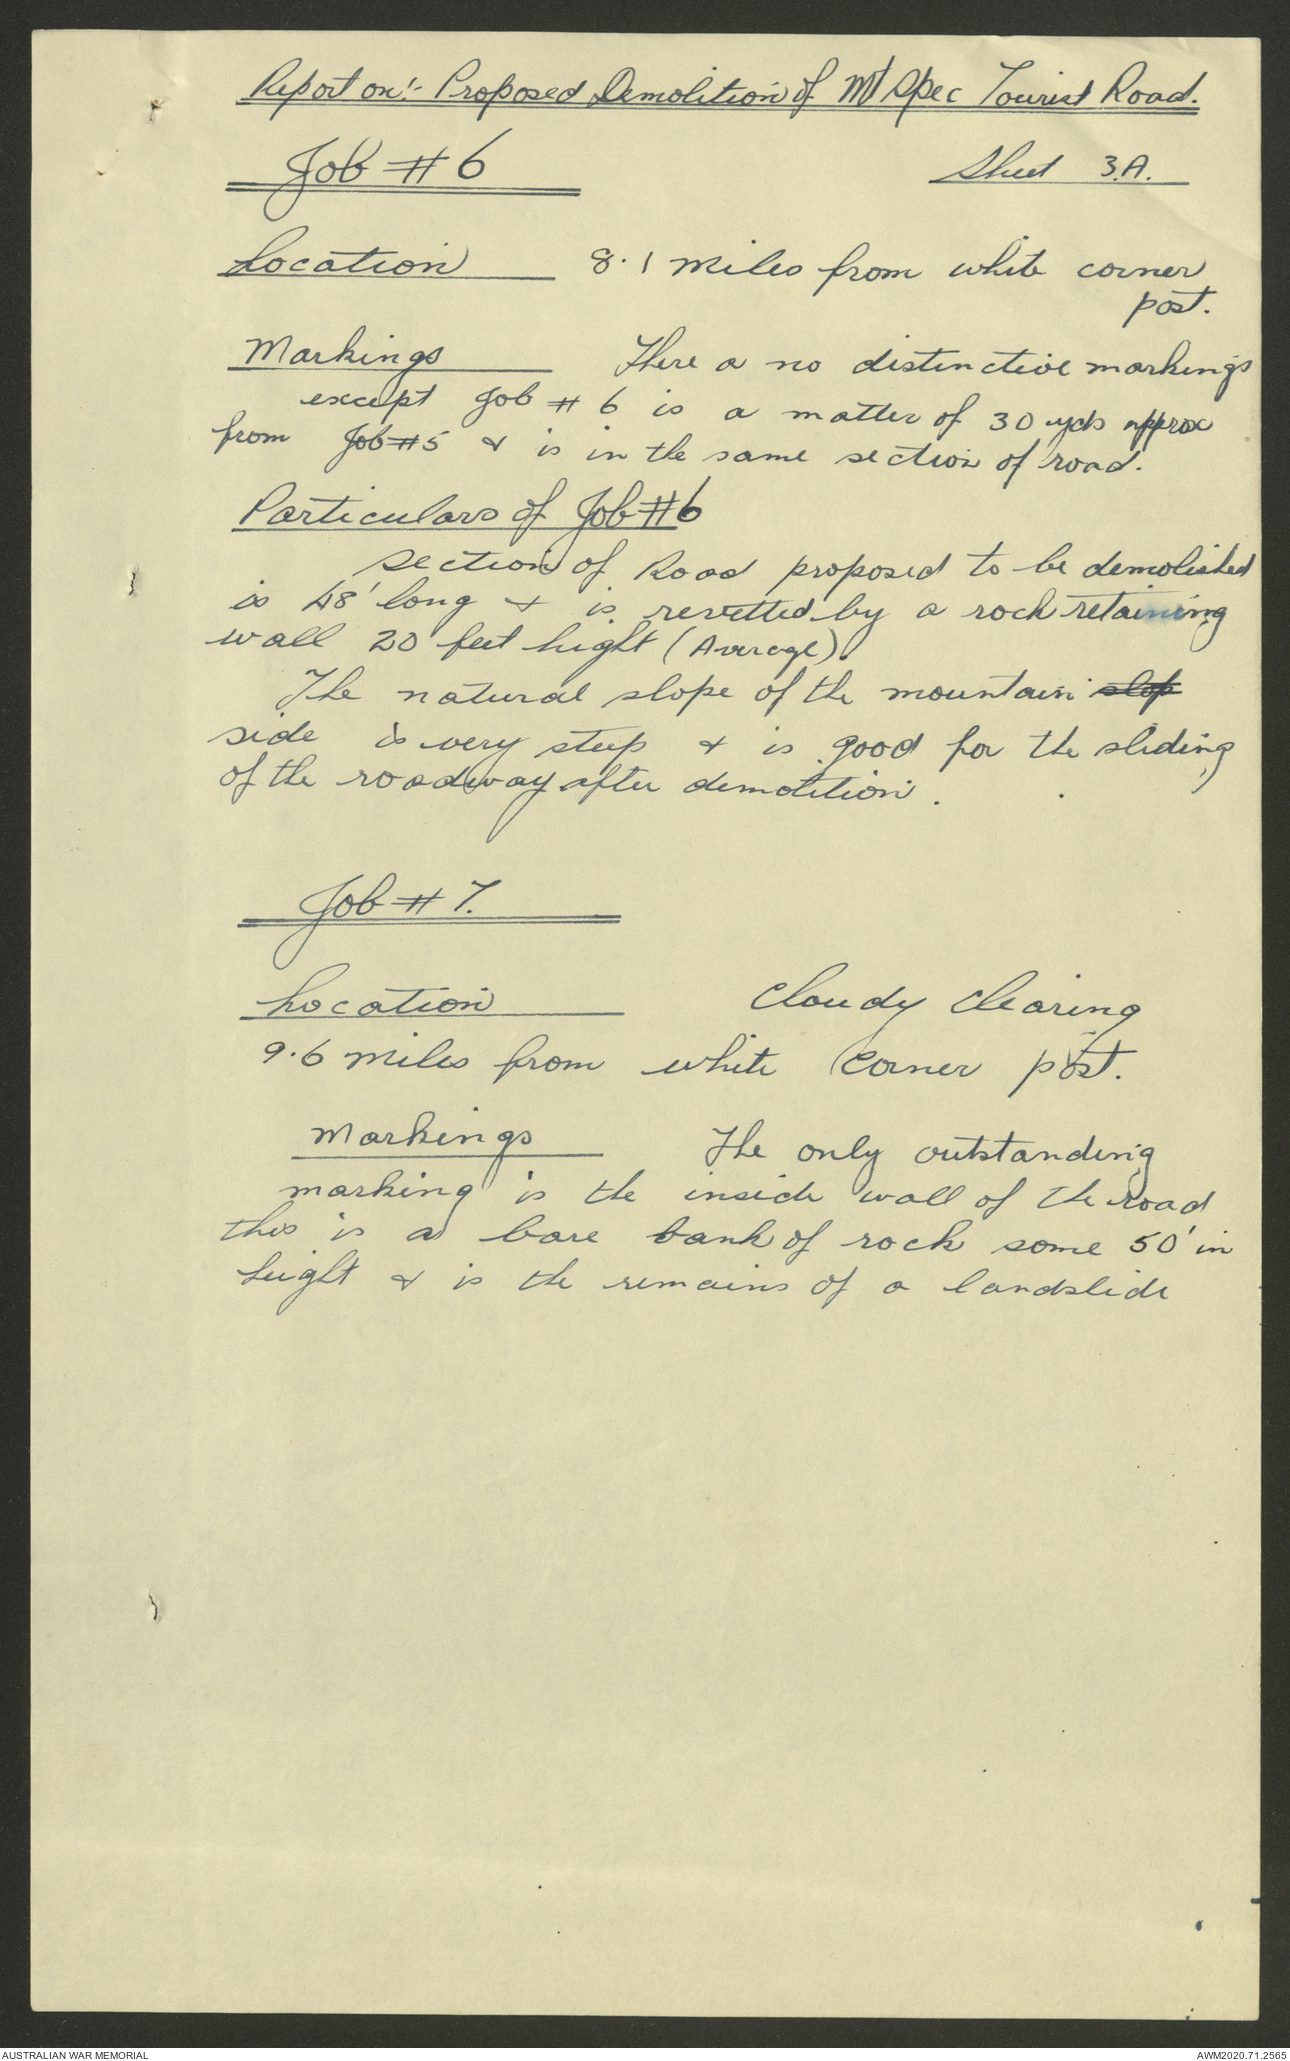 Report on:- Proposed Demolition of Mt Spec Tourist Road.
Job # 6
Sheet 3.A.
Location 8.1 miles from white corner
post.
Markings There a no distinctive markings
except Job # 6 is a matter of 30 yds approx
from Job # 5 & is in the same section of road.
Particulars of Job # 6
Section of Road proposed to be demolished
is 48' long & is revetted by a rock retaining
wall 20 feet hight (Average).
The natural slope of the mountain slop
side is very steep & is good for the sliding
of the roadway after demolition.
Job # 7.
Location Cloudy Clearing
9.6 miles from white corner post.
Markings The only outstanding
marking is the inside wall of the road
this is a bare bank of rock some 50' in
height & is the remains of a landslide
AUSTRALIAN WAR MEMORIAL
AWM2020.71.2565